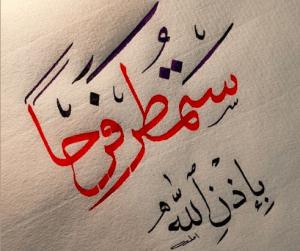 ستمطر فرحاً
بإذنِ اللّٰه